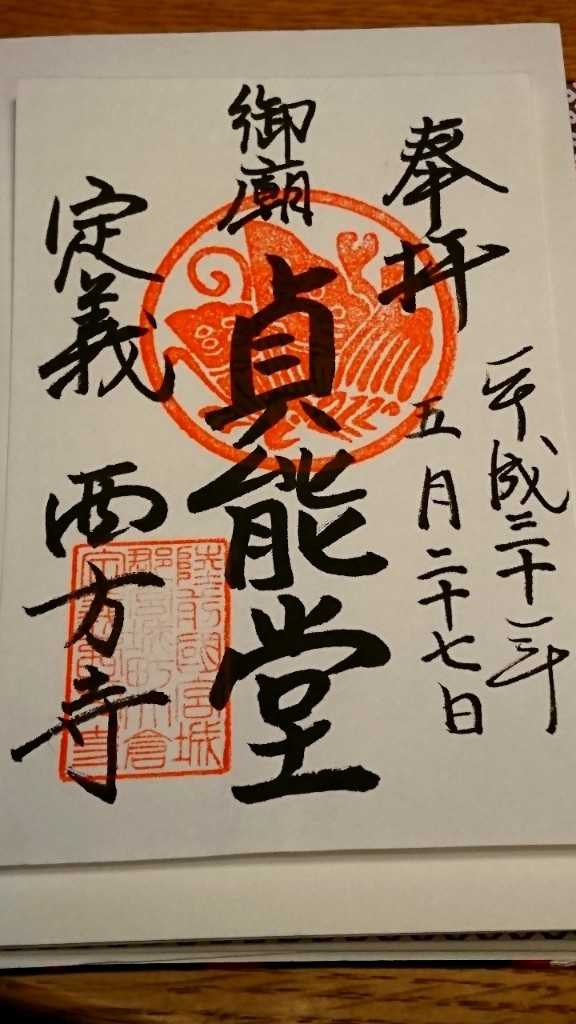 奉拝
平成三十年
五月二十七日
御廟
貞能堂
定義 西方寺
陸前國宮城
郡宮城町大倉